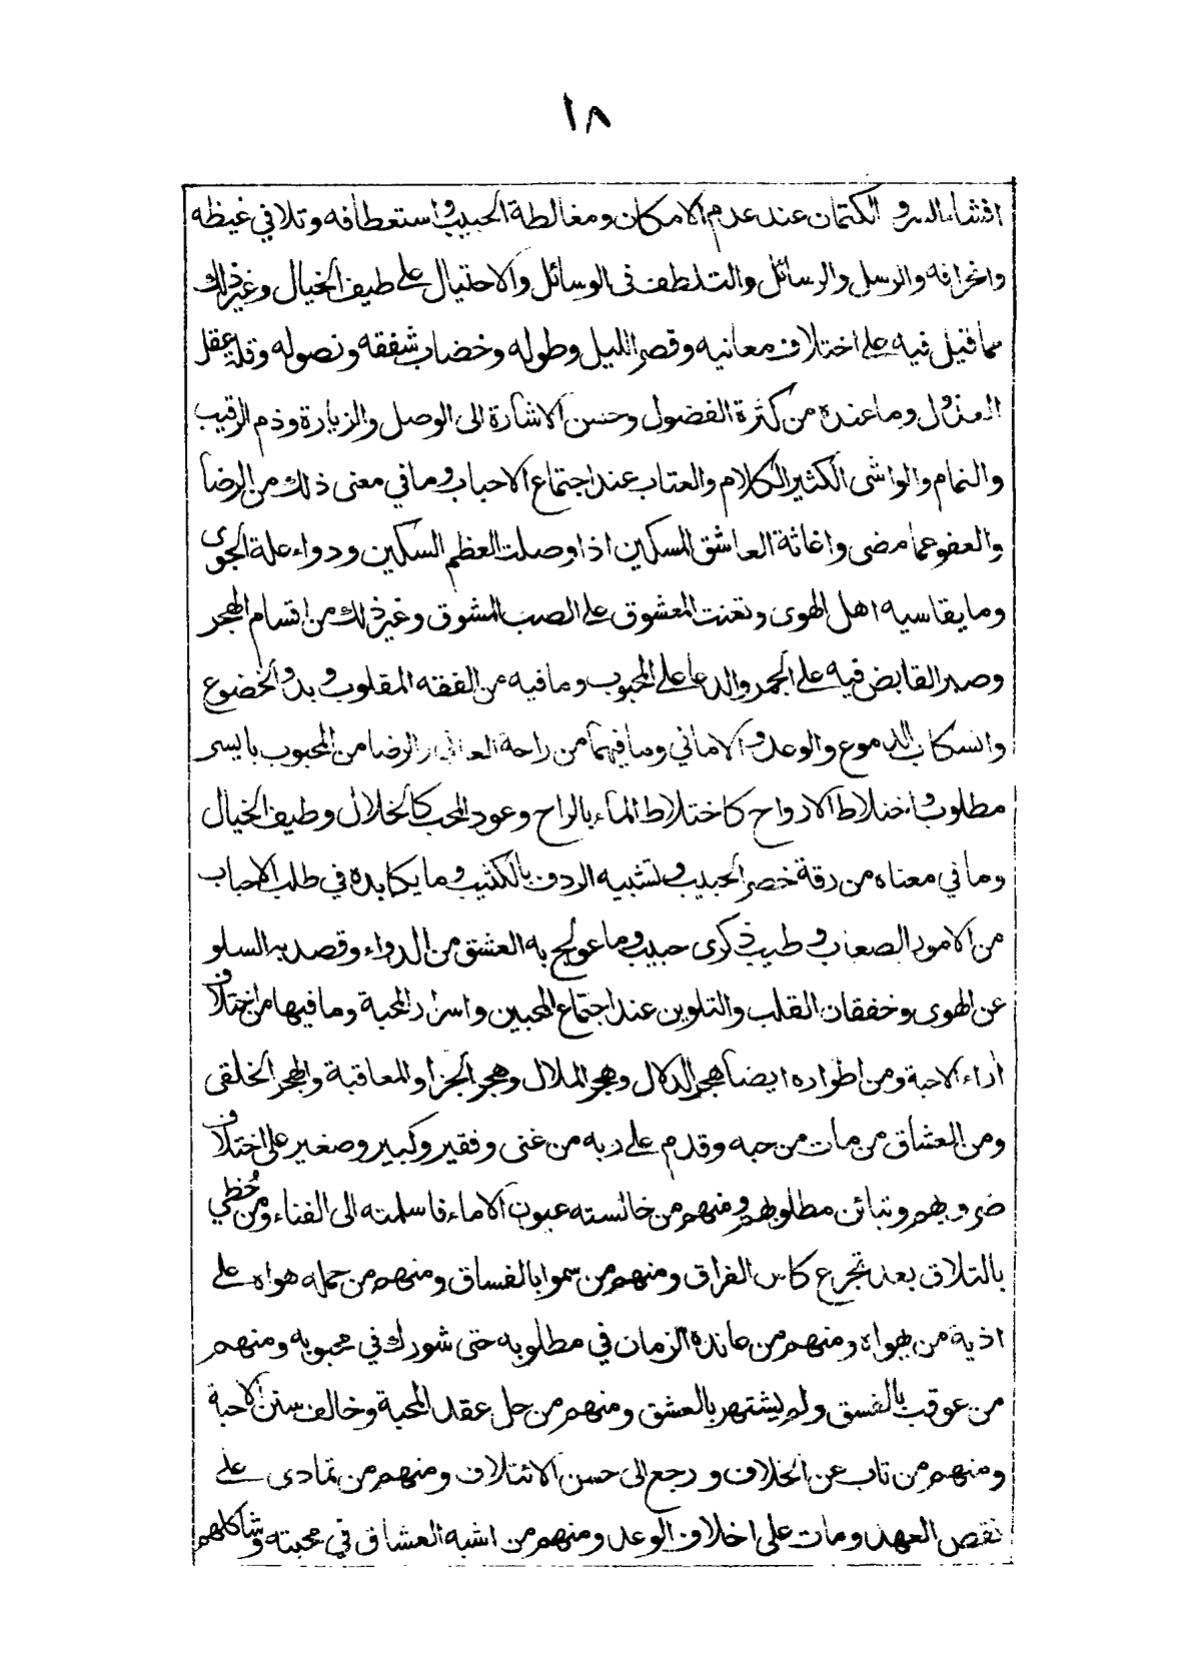 ١٨
افشاء السر و الكتمان عند عدم الامكان ومغالطة الحبيب واستعطافه وتلافي غيظه
وانحرافه والرسل والرسائل والتلطف فى الوسائل والاحتيال على طيف الخيال وغير ذلك
مما قيل فيه على اختلاف معانيه وقصر الليل وطوله وخضاب شفقه ونصوله وقلة عقل
العذول وما عنده من كثرة الفضول وحسن الاشارة الى الوصل والزيارة وذم الرقيب
والنمام والواشى الكثير الكلام والعتاب عند اجتماع الاحباب وما في معنى ذلك من الرضا
والعفو عما مضى واغاثة العاشق المسكين اذا وصلت العظم السكين ودواء علة الجوى
وما يقاسيه اهل الهوى وتعنت المعشوق على الصب المشوق وغير ذلك من اقسام الهجر
وصبر القابض فيه على الجمر والدعا على المحبوب وما فيه من الفقه المقلوب وبدو الخضوع
وانسكاب الدموع والوعد والاماني وما فيهما من راحة العانى والرضا من المحبوب بايسر
مطلوب واختلاط الارواح كاختلاط الماء بالراح وعود المحب كالخلال وطيف الخيال
وما في معناه من رقة خصر الحبيب وتشبيه الردف بالكثيب وما يكابده في طلب الاحباب
من الامور الصعاب وطيب ذكرى حبيب وما عولج به العشق من الدواء وقصد به السلو
عن الهوى وخفقان القلب والتلوين عند اجتماع المحبين واسرار المحبة وما فيها من اختلاف
آراء الاحبة ومن اطواره ايضا هجر الدلال وهجر الملال وهجر الجزا والمعاقبة والهجر الخلقى
ومن العشاق من مات من حبه وقدم على ربه من غنى وفقير وكبير وصغير على اختلاف
ضروبهم وتبائن مطلوبهم ومنهم من خالسته عيون الاماء فاسلمته الى الفناء ومن حُظي
بالتلاق بعد تجرع كاس الفراق ومنهم من سموا بالفساق ومنهم من حمله هواه على
اذية من يهواه ومنهم من عانده الزمان في مطلوبه حتى شورك في محبوبه ومنهم
من عوقب بالفسق ولم يشتهر بالعشق ومنهم من حل عقد المحبة وخالف سنن الاحبة
ومنهم من تاب عن الخلاف و رجع الى حسن الائتلاف ومنهم من تمادى على
نقض العهد ومات على اخلاف الوعد ومنهم من اشبه العشاق في محبته وشاكلهم